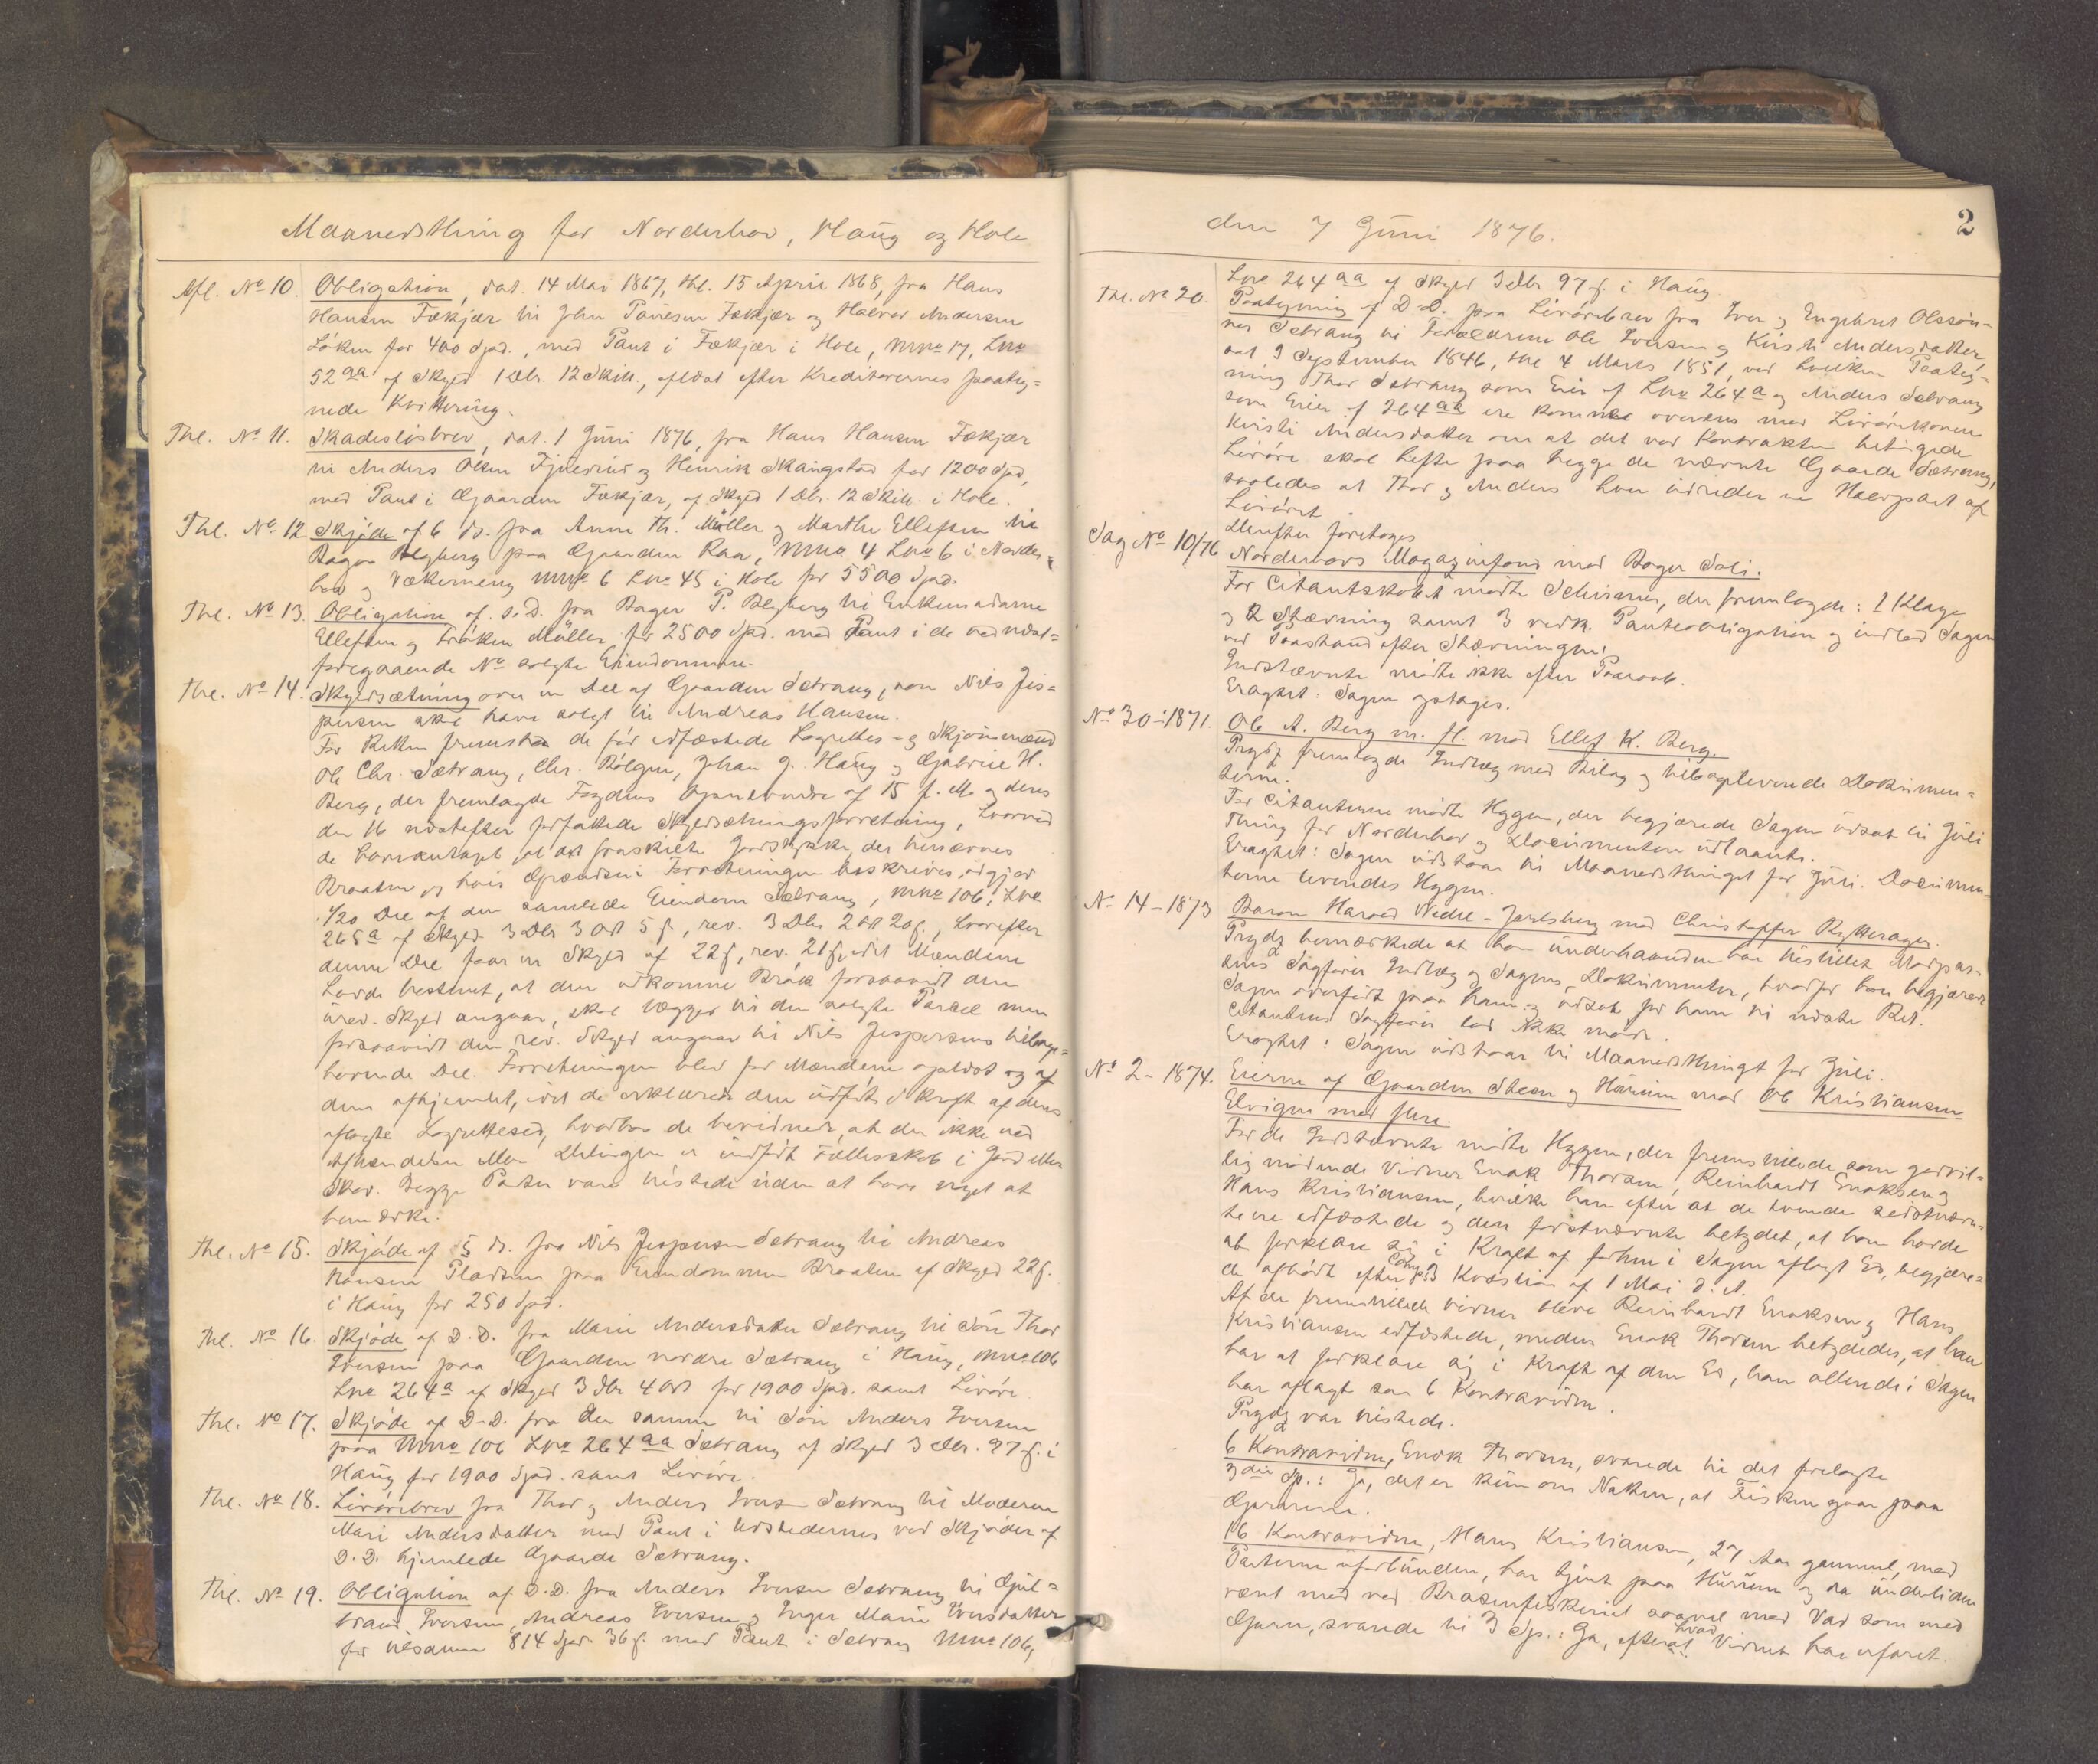 Maanedsthing for Norderhov, Haug og Hole
Afl. No 10. Obligation, dat. 14 Mai 1867, thl. 15 April 1868, fra Hans
Hansen Fækjær til John Paulsen Fækjær og Halvor Andersen
Löken for 400 Spd., med Pant i Fækjær i Hole, Mno 17, Lno
52 aa af Skyld 1 Dlr. 12 Skill., aflæst efter Kreditorernes paateg=
nede Kvittering.
Thl. No 11. Skadeslösbrev, dat. 1 Juni 1876, fra Hans Hansen Fækjær
til Anders Olsen Fjulsrud og Henrik Skaugstad for 1200 Spd,
med Pant i Gaarden Fækjær, af Skyld 1 Dlr. 12 Skill. i Hole.
Thl. No 12. Skjöde af 6 ds. fra Anne Th. Möller og Marthe Elleftsen til
Bager Blyberg paa Gaarden Raa, Mno 4 Lno 6 i Norder=
hov og Vækerneng Mno 6 Lno 45 i Hole for 5500 Spd.
Thl. No 13. Obligation af s. D. fra Bager P. Blyberg til Enkemadame
Elleftsen og Fröken Möller for 2500 Spd. med Pant i de ved næst=
foregaaende No solgte Eiendomme.
Thl. No 14. Skyldsætning over en Deel af Gaarden Setrang, som Nils Jes=
persen skal have solgt til Andreas Hansen.
For Retten fremstod de för edfæstede Lagrettes- og Skjönsmænd
Ole Chr. Sætrang, Chr. Bölgen, Johan J. Haug og Gabriel H.
Berg, der fremlagde Fogdens Opnævnelse af 15 f. M. og deres
den 16 næstefter forfattede Skyldsætningsforretning, hvorved
de have antaget at det fraskilte Jordstykke, der benævnes
Braaten og hvis Grændser i Forretningen beskrives, udgjör
1/20 Deel af den samlede Eiendom Sætrang, Mno 106, Lno
265a af Skyld 3 Dlr 3 Ort 5 ß, rev. 3 Dlr 2 Ort 20 ß., hvorefter
denne Deel faar en Skyld af 22 ß, rev. 21 ß, idet Mændene
havde bestemt, at den udkomne Brök forsaavidt den
urev. Skyld angaar, skal lægges til den solgte Parcel men
forsaavidt den rev. Skyld angaar til Nils Jespersens tilbage=
havende Deel. Forretningen blev for Mændene oplæst og af
dem afhjemlet, idet de erklærede den udfört i Kraft af deres
aflagte Lagrettesed, hvorhos de bevidnede, at der ikke ved
Afhændelsen eller Delingen er indfört Fællesskab i Jord eller
Skov. Begge Parter vare tilstede uden at have noget at
bemærke.
Thl. No 15. Skjöde af 5 ds. fra Nils Jespersen Sætrang til Andreas
Hansen Pladsen paa Eiendommen Braaten af Skyld 22 ß.
i Haug for 250 Spd.
Thl. No 16. Skjöde af D. D. fra Marie Andersdatter Sætrang til Sön Thor
Iversen paa Gaarden nordre Sætrang i Haug, Mno 106
Lno 264a af Skyld 3 Dlr 4 Ort for 1900 Spd. samt Livöre.
Thl. No 17. Skjöde af D. D. fra den samme til Sön Anders Iversen
paa Mno 106 Lno 264 aa Sætrang af Skyld 3 Dlr. 97 ß. i
Haug for 1900 Spd. samt Livöre.
Thl. No 18. Livörebrev fra Thor og Anders Iversen Sætrang til Moderen
Mari Andersdatter med Pant i Udstedernes ved Skjöder af
D. D. hjemlede Gaarde Sætrang.
Thl. No 19. Obligation af D. D. fra Anders Iversen Sætrang til Gul=
brand Iversen, Andreas Iversen og Inger Marie Iversdatter
for tilsammen 814 Spd. 36 ß. med Pant i Sætrang Mno 106,
den 7 Juni 1876.
2
Lno 264 aa af Skyld 3 Dlr 97 ß. i Haug.
Thl. No 20. Paategning af D. D. paa Livörebrev fra Iver og Engebret Olssön=
ner Sætrang til Forældrene Ole Iversen og Kirsti Andersdatter,
dat 9 September 1846, thl 4 Marts 1851, ved hvilken Paateg=
ning Thor Sætrang som Eier af Lno 264a og Anders Sætrang
som Eier af 264 aa ere komne overens med Livörekonen
Kirsti Andersdatter om at det ved Kontrakten betingede
Livöre skal hefte paa begge de nævnte Gaarde Sætrang,
saaledes at Thor og Anders hver udreder en Halvpart af
Livöret.
Derefter foretoges
Sag No 10/76 Norderhovs Magazinfond mod Bager Soli.
For Citantskabet mödte Scheines, der fremlagde: 1 Klage
og 2 Stævning samt 3 vedk. Panteobligation og indlod Sagen
ved Paastand efter Stævningen.
Indstævnte mödte ikke efter Paaraab.
Eragtet: Sagen optages.
No 30 - 1871. Ole A. Berg m. fl. mod Ellef K. Berg.
Prydz fremlagde Indlæg med Bilag og tilbageleverede Dokumen=
terne.
For Citanterne mödte Hyggen, der begjærede Sagen udsat til Juli
Thing for Norderhov og Documenterne udlaante.
Eragtet: Sagen udstaar til Maanedsthinget for Juli. Documen=
terne leveredes Hyggen.
No 14 - 1873 Baron Harald Wedel-Jarlsberg mod Christopher Rytterager.
Prydz bemærkede at han underhaanden har tilstillet Modpar=
tens Sagförer Indlæg og Sagens Dokumenter, hvorfor han begjærede
Sagen overfört paa ham og udsat for ham til næste Ret.
Citantens Sagförer lod ikke möde.
Eragtet: Sagen udstaar til Maanedsthinget for Juli.
No 2 - 1874. Eierne af Gaarden Steen og Hörum mod Ole Kristiansen
Elvigen med flere.
For de Indstævnte mödte Hyggen, der fremstillede som godvil=
lig mödende Vidner Enok Thorsen, Reinhardt Enoksen og
Hans Kristiansen, hvilke han efter at de tvende sidstnævn=
te ere edfæstede og den förstnævnte betydet, at han havde
at forklare sig i Kraft af forhen i Sagen aflagt Ed, begjære=
de afhört efter Comp. 3 Kvæstion af 1 Mai d. A.
Af de fremstillede Vidner bleve Reinhardt Enoksen og Hans
Kristiansen edfæstede, medens Enok Thorsen betydedes, at han
har at forklare sig i Kraft af den Ed, han allerede i Sagen
har aflagt som 6 Kontravidne.
Prydz var tilstede.
6 Kontravidne, Enok Thorsen, svarede til det forelagte
3die Sp.: Ja, det er kun om Natten, at Fisken gaar paa
Garnene.
16 Kontravidne, Hans Kristiansen, 27 Aar gammel, med
Parterne uforbunden, har tjent paa Hurum og da undertiden
været med ved Brasenfiskeriet saavel med Vad som med
Garn, svarede til 3 Sp.: Ja, efter hvad Vidnet har erfaret.